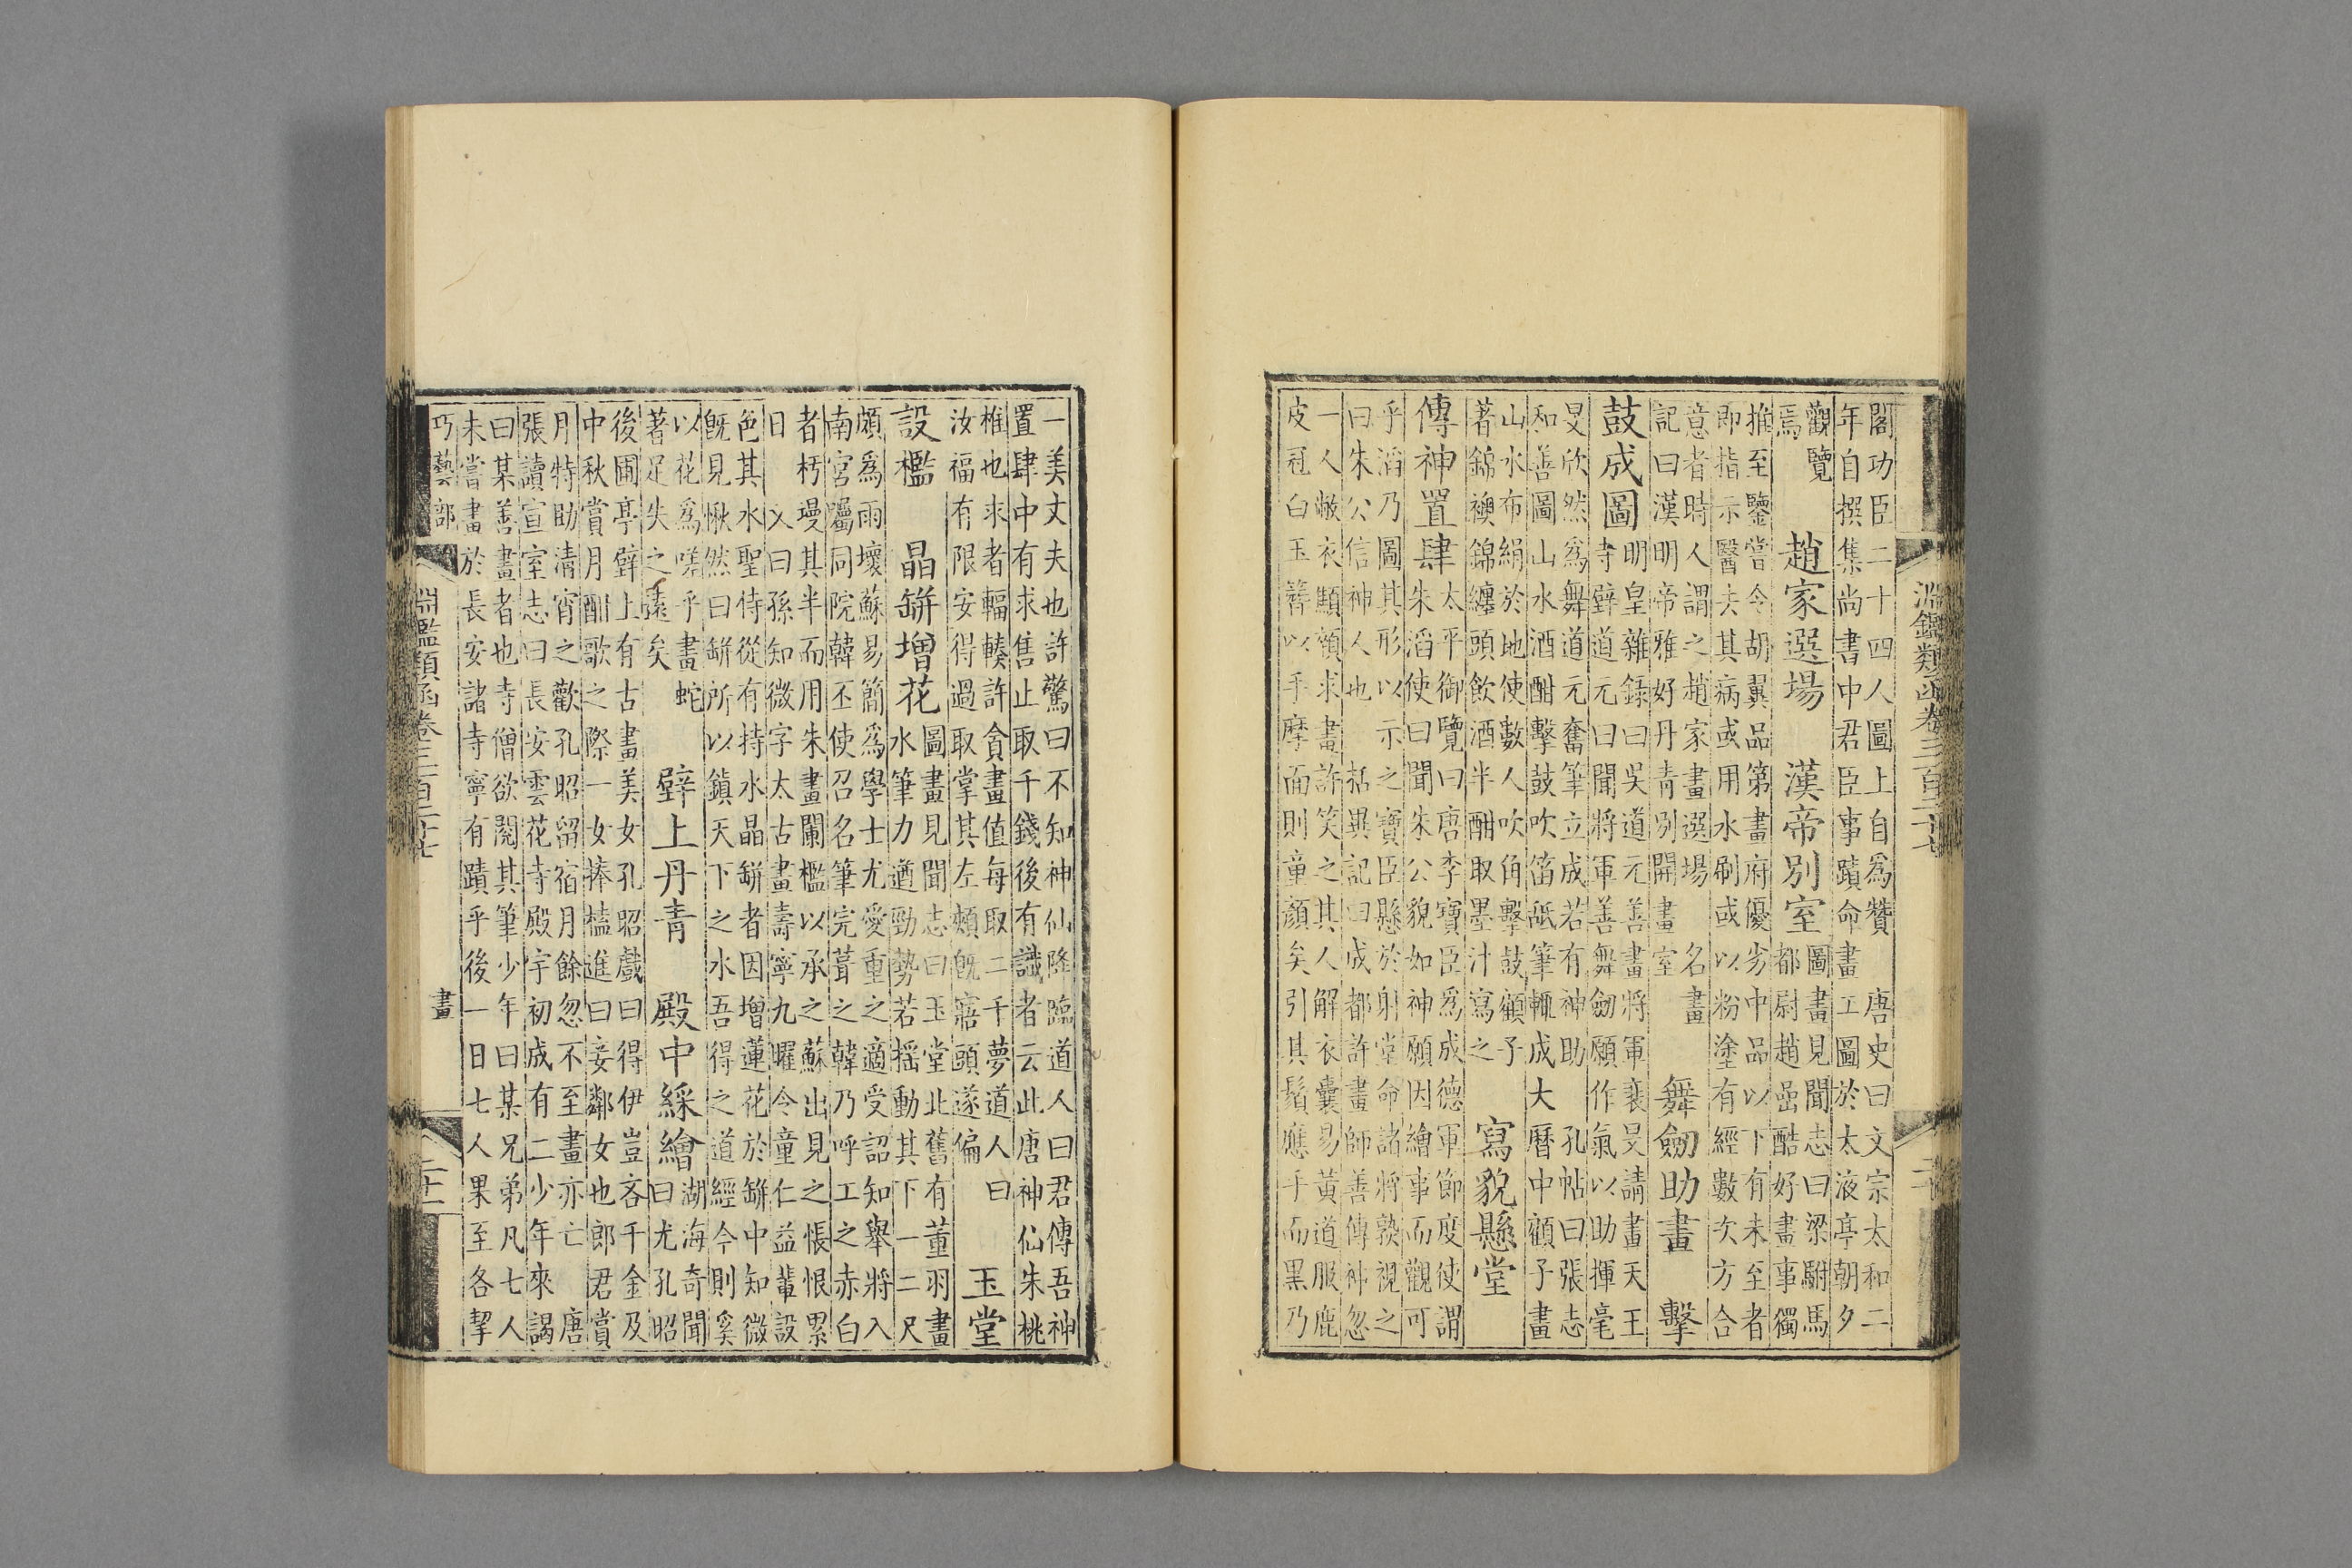 閣功臣二十四人圖上自爲贊 唐史曰文宗太和二
年自撰集尚書中君臣事蹟命畫工圖於太液亭朝夕
觀覽
焉
趙家選場 漢帝別室
圖畫見聞志曰梁駙馬
都尉趙嵒酷好畫事獨
推至鑒嘗令胡翼品第畫府優劣中品以下有未至者
即指示醫去其病或用水刷或以粉塗有經數次方合
意者時人謂之趙家畫選場 名畫
記曰漢明帝雅好丹青別開畫室
舞劒助畫 擊
鼓成圖
明皇雜錄曰吳道元善畫將軍裴旻請畫天王
寺壁道元曰聞將軍善舞劒願作氣以助揮毫
旻欣然爲舞道元奮筆立成若有神助 孔帖曰張志
和善圖山水酒酣擊鼓吹笛舐筆輒成大曆中顧子畫
山水布絹於地使數人吹角擊鼓顧子
著錦襖錦纏頭飲酒半酣取墨汁寫之
寫貌懸堂
傳神置肆
太平御覽曰唐李寶臣爲成德軍節度使謂
朱滔使曰聞朱公貌如神願因繪事而觀可
乎滔乃圖其形以示之寶臣懸於射堂命諸將孰視之
曰朱公信神人也 括異記曰成都許畫師善傳神忽
一人敝衣顯頟求畫許笑之其人解衣囊易黃道服鹿
皮冠白玉簪以手摩面則童顏矣引其鬚應手而黑乃
淵鑑類函卷三百二十七
二十
一美丈夫也許驚曰不知神仙降臨道人曰君傳吾神
置肆中有求售止取千錢後有識者云此唐神仙朱桃
椎也求者輻輳許貪畫值每取二千夢道人曰
汝福有限安得過取掌其左頰旣寤頤遂偏
玉堂
設檻 晶缾增花
圖畫見聞志曰玉堂北舊有董羽畫
水筆力遒勁勢若搖動其下一二尺
頗爲雨壞蘇易簡爲學士尤愛重之適受詔知舉將入
南宮囑同院韓丕使召名筆完葺之韓乃呼工之赤白
者杇墁其半而用朱畫闌檻以承之蘇出見之悵恨累
日 又曰孫知微字太古畫壽寧九曜令童仁益輩設
色其水聖侍從有持水晶缾者因增蓮花於缾中知微
旣見愀然曰缾所以鎮天下之水吾得之道經今則奚
以花爲嗟乎畫蛇
著足失之遠矣
壁上丹青 殿中綵繪
湖海奇聞
曰尤孔昭
後圃亭壁上有古畫美女孔昭戲曰得伊豈吝千金及
中秋賞月酣歌之際一女捧榼進曰妾鄰女也郎君賞
月特助清宵之歡孔昭留宿月餘忽不至畫亦亡 唐
張讀宣室志曰長安雲花寺殿宇初成有二少年來謁
曰某善畫者也寺僧欲閱其筆少年曰某兄弟凡七人
未嘗畫於長安諸寺寧有蹟乎後一日七人果至各挈
巧藝部
畫
淵鑑類函卷三百二十七
二十一